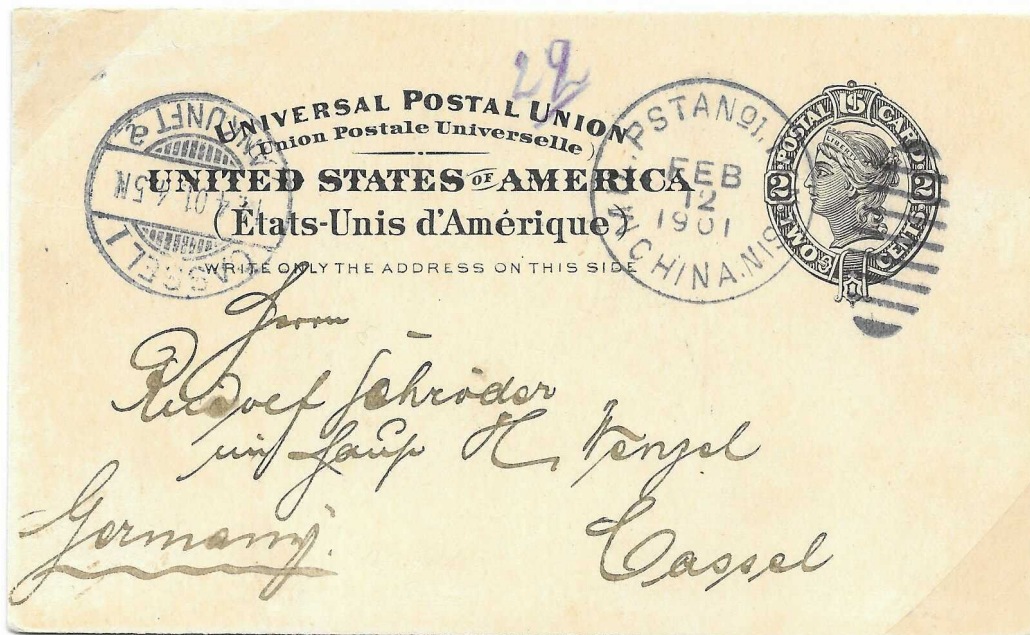 22
UNIVERSAL POSTAL UNION
(Union Postale Universelle)
UNITED STATES OF AMERICA
(États-Unis d'Amérique)
WRITE ONLY THE ADDRESS ON THIS SIDE
CASSEL 1
4.01. 4-5N
MIL. P. STA. No 1,
FEB
12
1901
CHINA.
U.S.
POSTAL CARD
LIBERTY
2 2
TWO CENTS
Herrn
Rudolf Schröder
im Hause H. Wenzel
Cassel
Germany.